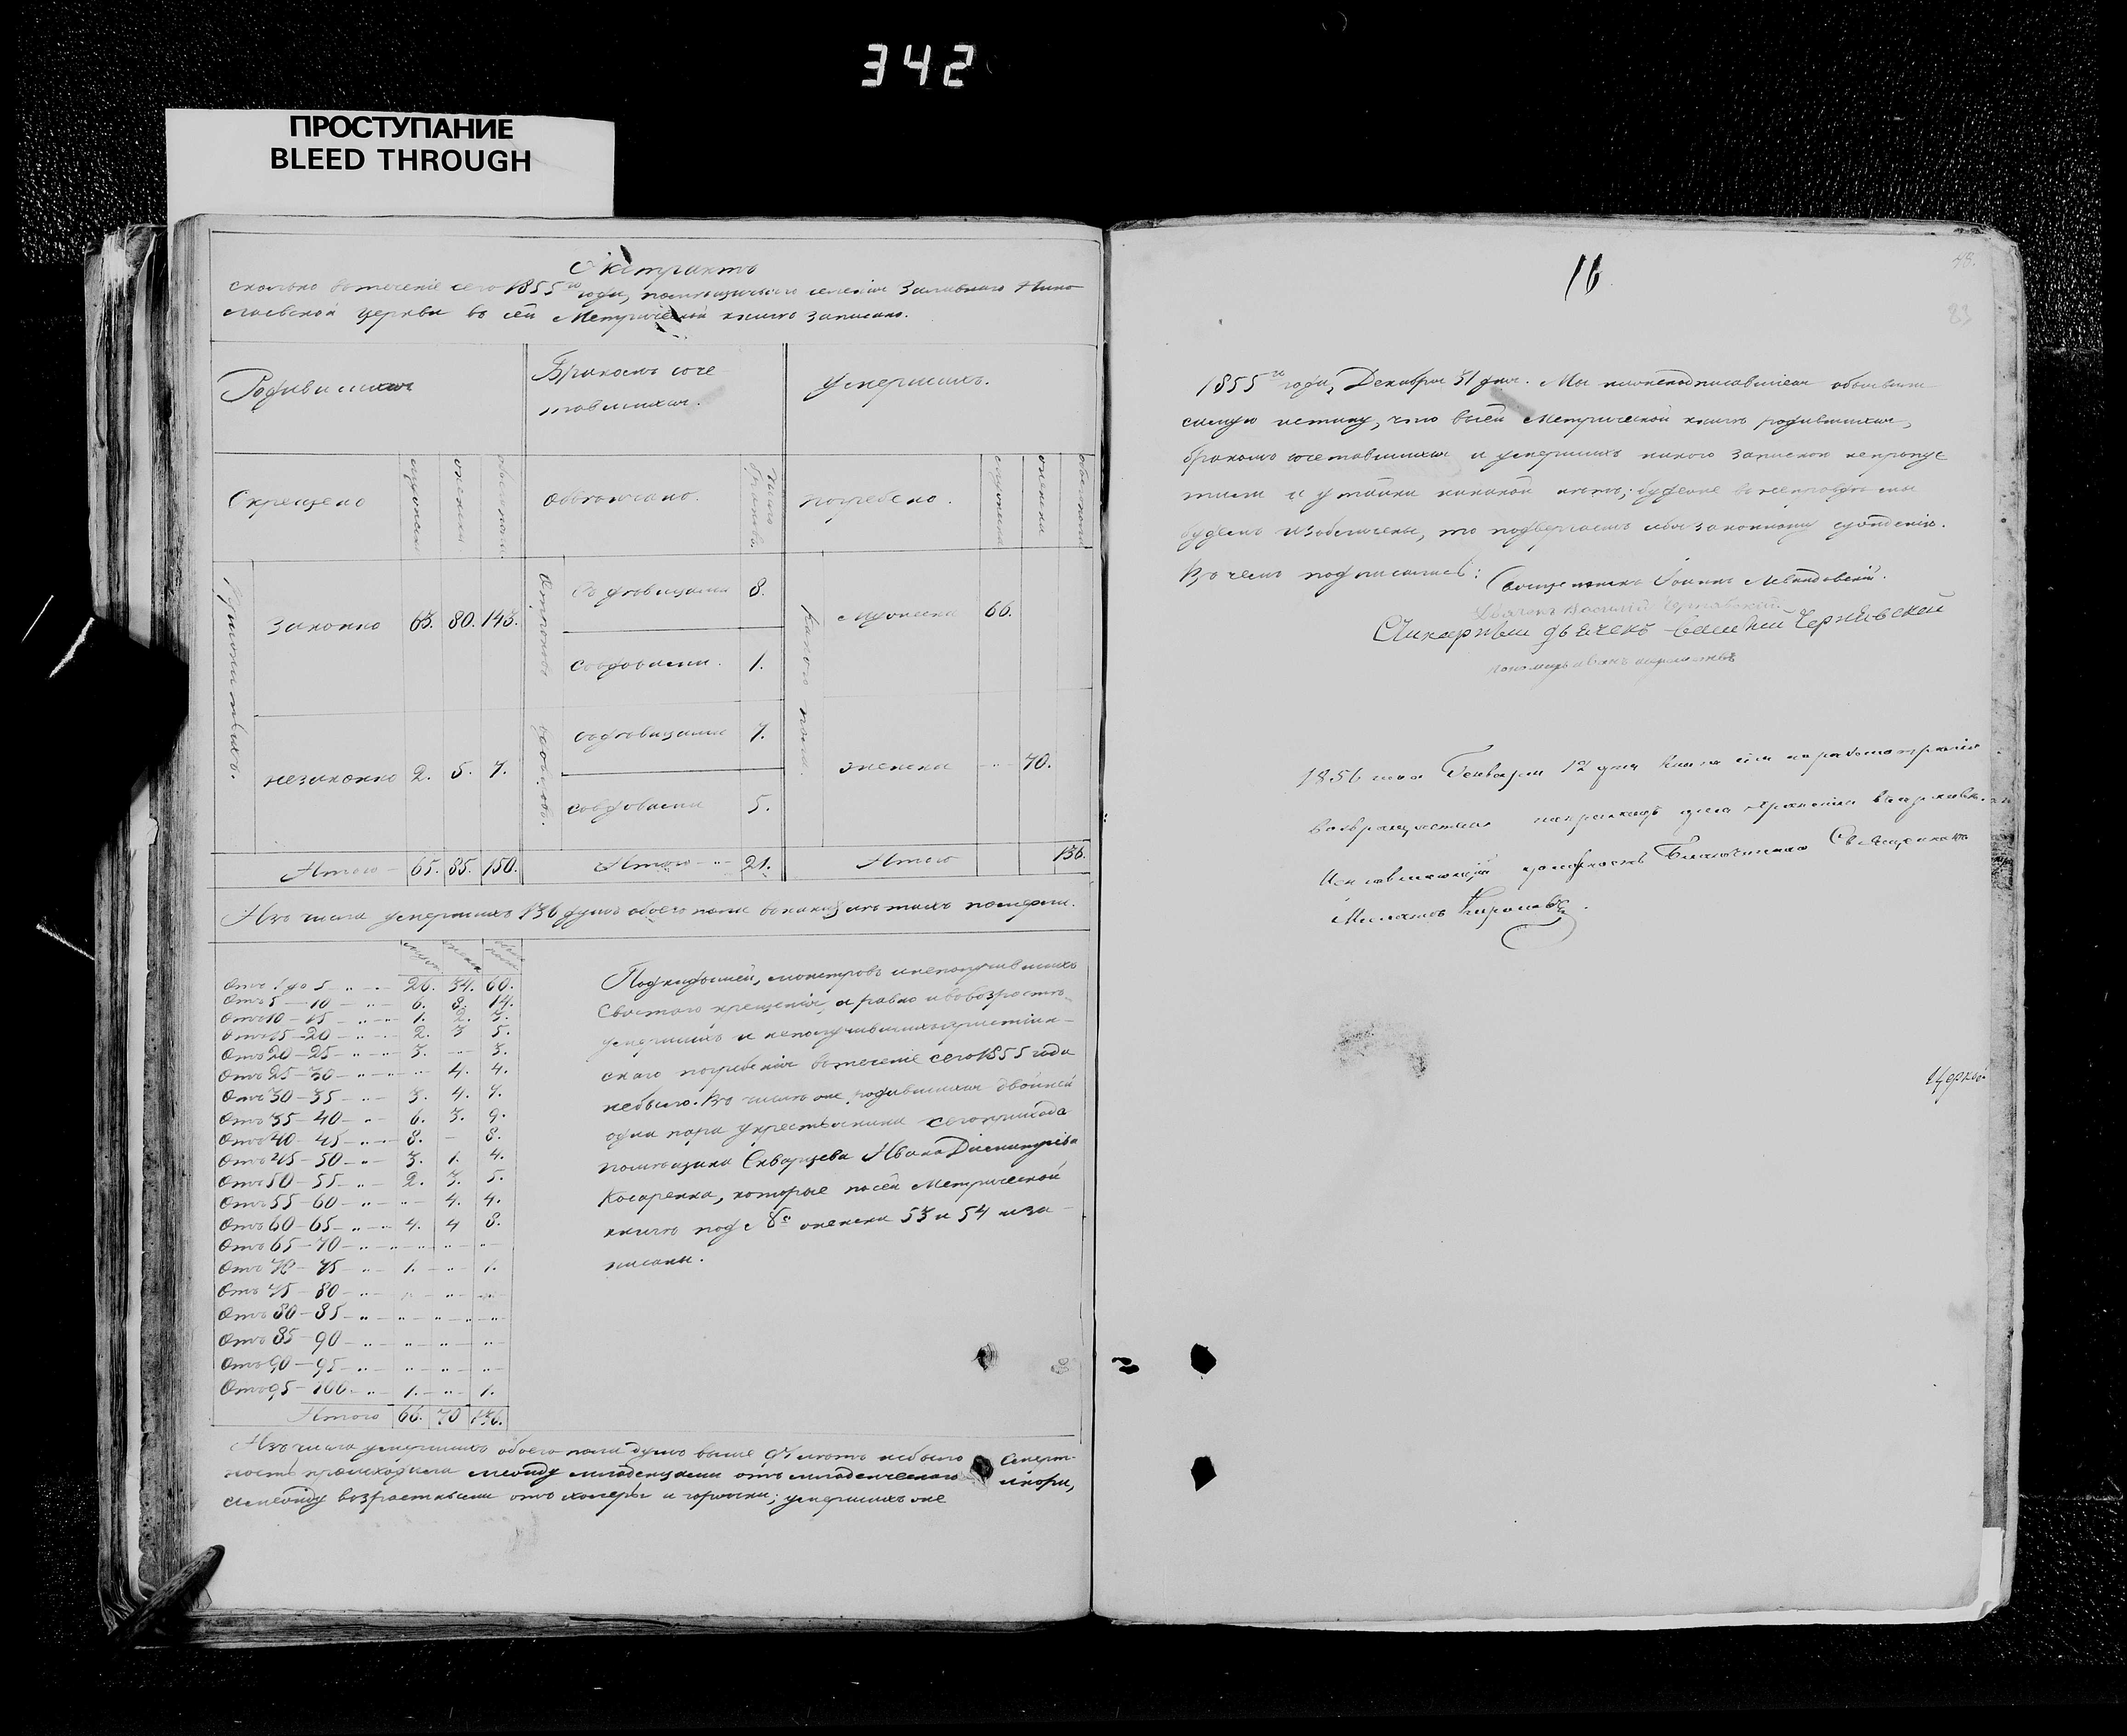 342
ПРОСТУПАНИЕ
BLEED THROUGH
Экстрактъ
сколько втеченіе сего 1855го года, помѣщичьяго селенія Заливнаго Нико
лаевской церкви въ сей Метрической книгѣ записано.
Родившихся
Бракомъ соче
тавшихся.
Умершихъ.
Окрещено
мужеска
женска
обоего пола
обвѣнчано.
число браковъ.
погребено.
мужеска
женска
обоего пола
законно 63. 80. 143.
Отроковъ
Съ дѣвицами 8.
Совдовами. 1.
какого пола.
мужеска 66.
незаконно 2. 5. 7.
вдовцовъ.
содѣвицами 7.
Совдовами 5.
женска 70.
Итого 65. 85. 150.
Итого 21.
Итого 136.
Изъ числа умершихъ 136 душъ обоего пола въ какихъ лѣтахъ померли.
мужск. женск. обоего пола
Отъ 1 до 5 26. 34. 60.
Отъ 5 — 10 6. 8. 14.
Отъ 10 — 15 1. 2. 3.
Отъ 15 — 20 2. 3 5.
Отъ 20 — 25 3. 3.
Отъ 25 — 30 4. 4.
Отъ 30 — 35 3. 4. 7.
Отъ 35 — 40 6. 3. 9.
Отъ 40 — 45 8. — 8.
Отъ 45 — 50 3. 1. 4.
Отъ 50 — 55 2. 3. 5.
Отъ 55 — 60 4. 4.
Отъ 60 — 65 4. 4 8.
Отъ 65 — 70
Отъ 70 — 75 1. 1.
Отъ 75 — 80
Отъ 80 — 85
Отъ 85 — 90
Отъ 90 — 95
Отъ 95 — 100 1. 1.
Итого 66. 70 136.
Подкидышей, монстровъ инеполучившихъ
Святаго крещенія, а равно ивовозрастѣ
умершихъ и неполучившихъ христіан-
скаго погребенія втеченіе сего 1855 года
небыло. Въ числѣ же родившихся двойней
одна пара укрестьянина сегоприхода
помѣщика Скварцева Ивана Димитріева
Косаренка, которые посей Метрической
книгѣ под № женска 53 и 54 иза-
писаны.
Изъ числа умершихъ обоего пола душъ выше 97 лѣтъ небыло Смерт-
ность происходила между младенцами отъ младенческаго
имежду возрастными отъ холеры и горячки; умершихъ же
16
1855го года, Декабря 31 дня. Мы нижеподписавшіеся объявили
самую истину, что въсей Метрической книгѣ родившихся,
бракомъ сочетавшихся и умершихъ никого запискою непропус
тили и утайки никакой нѣтъ; будеже въ неправдѣ мы
будемъ изобличены, то подвергаемъ себя законному сужденію.
Въ чемъ подписались: Священникъ Іоаннъ Левандовскій.
Дьячекъ Василій Чернявскій
дьячекъ Чернявской
пономарь Иванъ
1856 года Генваря дня Книга сія поразсмотреніи
возвращается для храненія въцерковь.
должность Благочиннаго Священникъ
Церков